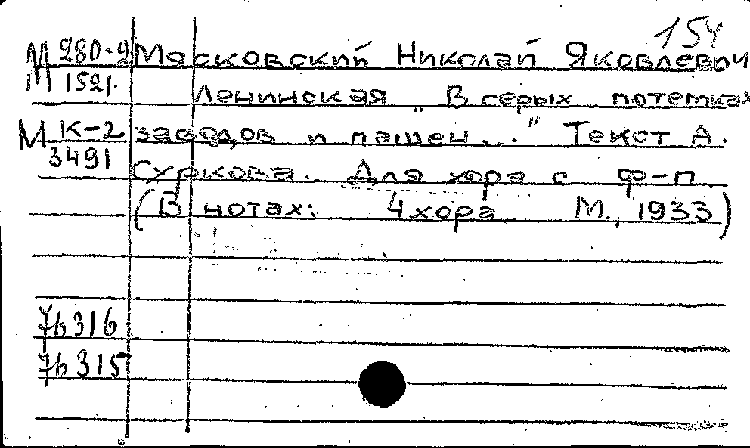 154
М 280-2 Мясковский Николай Яковлевич
М 1521. Ленинская „В серых потемках
М К-2 заводов и пашен..." Текст А.
3491 Суркова. Для хора с ф-п
(В нотах: 4 хора М., 1933)
316
315